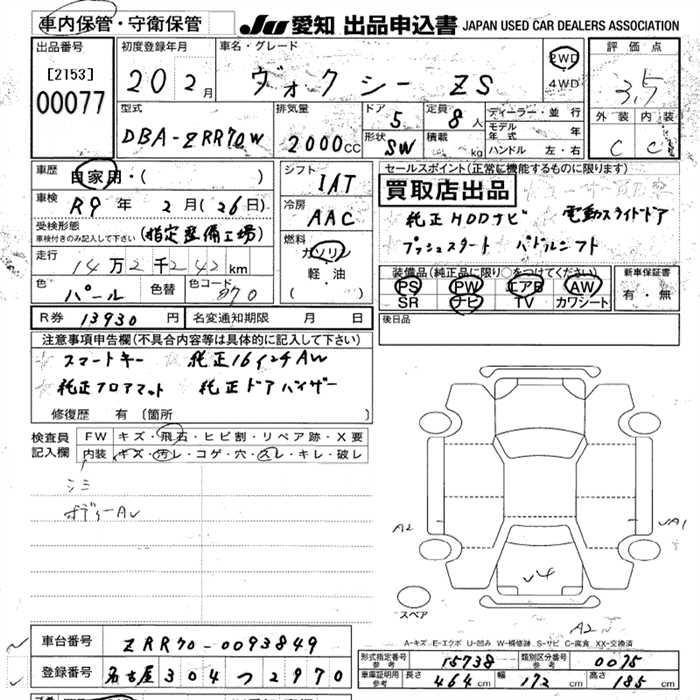 車内保管・守衛保管
JU 愛知 出品申込書 JAPAN USED CAR DEALERS ASSOCIATION
出品番号
[2153]
00077
初度登録年月
20 2月
車名・グレード
ヴォクシー ZS
2WD
4WD
評価点
3.5
外装 内装
C C
型式
DBA-ZRR70W
排気量
2000cc
ドア
5
形状
SW
定員
8人
積載
kg
ディーラー・並行
モデル年式 年
ハンドル 左・右
車歴
自家用・( )
車検
R9年 2月(26日)
受検形態
車検付きのみ記入して下さい
(指定整備工場)
走行
14万2千242km
色
パール
色替
色コード
070
シフト
IAT
冷房
AAC
燃料
ガソリン
軽・油
( )
セールスポイント(正常に機能するものに限ります)
買取店出品
純正HDDナビ 電動スライドドア
プッシュスタート パドルシフト
装備品(純正品に限り○をつけてください)
PS PW エアB AW
SR ナビ TV カワシート
新車保証書
有・無
R券 13930円
名変通知期限 月 日
後日品
注意事項申告欄(不具合内容等は具体的に記入して下さい)
スマートキー 純正16インチAW
純正フロアマット 純正ドアバイザー
修復歴 有 (箇所 )
検査員記入欄
FW キズ・飛石・ヒビ割・リペア跡・X要
内装 キズ・汚レ・コゲ・穴・スレ・キレ・破レ
シミ
ボディーAU
A2
A1
U4
A2
スペア
A-キズ E-エクボ U-凹み W-補修跡 S-サビ C-腐食 XX-交換済
車台番号
ZRR70-0093849
登録番号
名古屋 304 つ 2970
形式指定番号 参考
15738
類別区分番号 参考
0075
車庫証明用 参考
長さ 464cm 幅 172cm 高さ 185cm